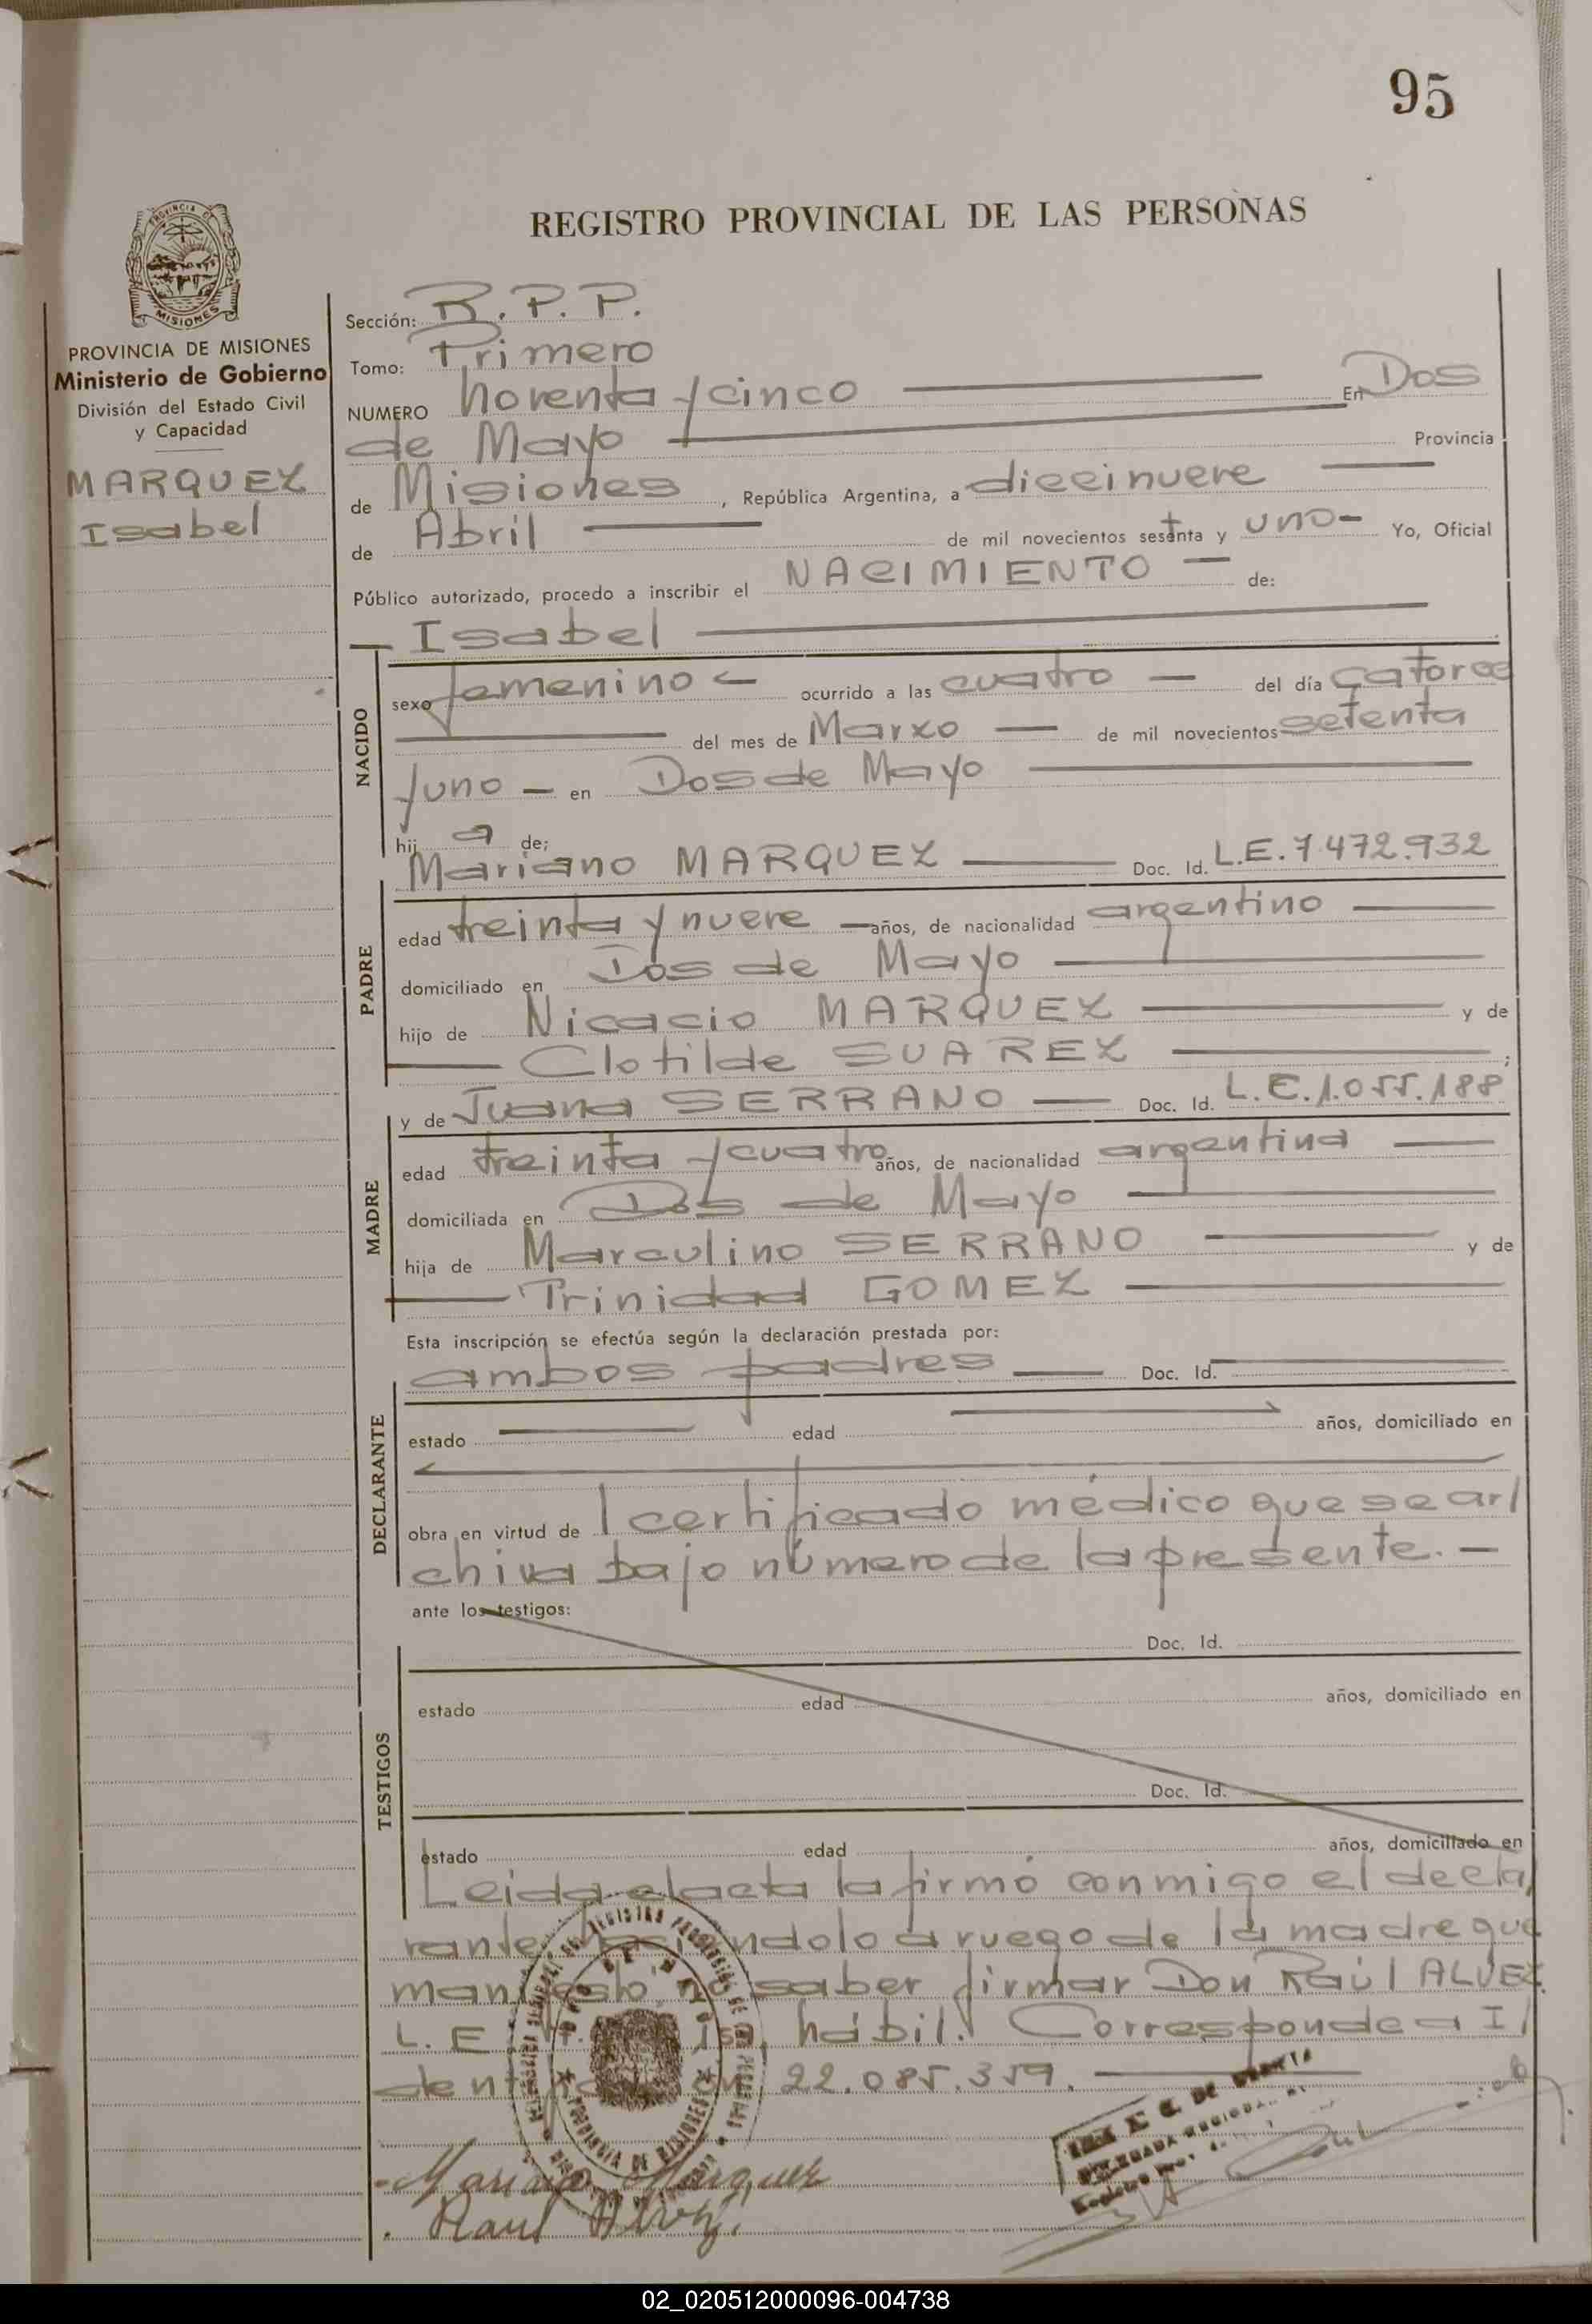 95
REGISTRO PROVINCIAL DE LAS PERSONAS
PROVINCIA DE
MISIONES
PROVINCIA DE MISIONES
Ministerio de Gobierno
División del Estado Civil
y Capacidad
MARQUEZ
Isabel
Sección: R.P.P.
Tomo: Primero
NUMERO noventa y cinco En Dos
de Mayo Provincia
de Misiones, República Argentina, a diecinueve
de Abril de mil novecientos sesenta y uno- Yo, Oficial
Público autorizado, procedo a inscribir el NACIMIENTO de:
Isabel
NACIDO
sexo femenino ocurrido a las cuatro del día catorce
del mes de Marzo de mil novecientos setenta
y uno en Dos de Mayo
hij a de;
Mariano MARQUEZ Doc. Id. L.E. 7.472.932
PADRE
edad treinta y nueve años, de nacionalidad argentino
domiciliado en Dos de Mayo
hijo de Nicacio MARQUEZ y de
Clotilde SUAREZ ;
y de Juana SERRANO Doc. Id. L.C. 1.055.188
MADRE
edad treinta y cuatro años, de nacionalidad argentina
domiciliada en Dos de Mayo
hija de Marculino SERRANO y de
Trinidad GOMEZ
Esta inscripción se efectúa según la declaración prestada por:
ambos padres Doc. Id.
DECLARANTE
estado edad años, domiciliado en
obra en virtud de l certificado médico que se ar/
chiva bajo número de la presente.-
ante los testigos:
Doc. Id.
TESTIGOS
estado edad años, domiciliado en
Doc. Id.
estado edad años, domiciliado en
Leida el acta la firmó conmigo el decla/
rante, a ruego de la madre que
no saber firmar Don Raúl ALVEZ
L.E. hábil. Corresponde a I/
22.085.359.
PROVINCIA DE MISIONES
Mariano Marquez
Raul Alvez.
02_020512000096-004738